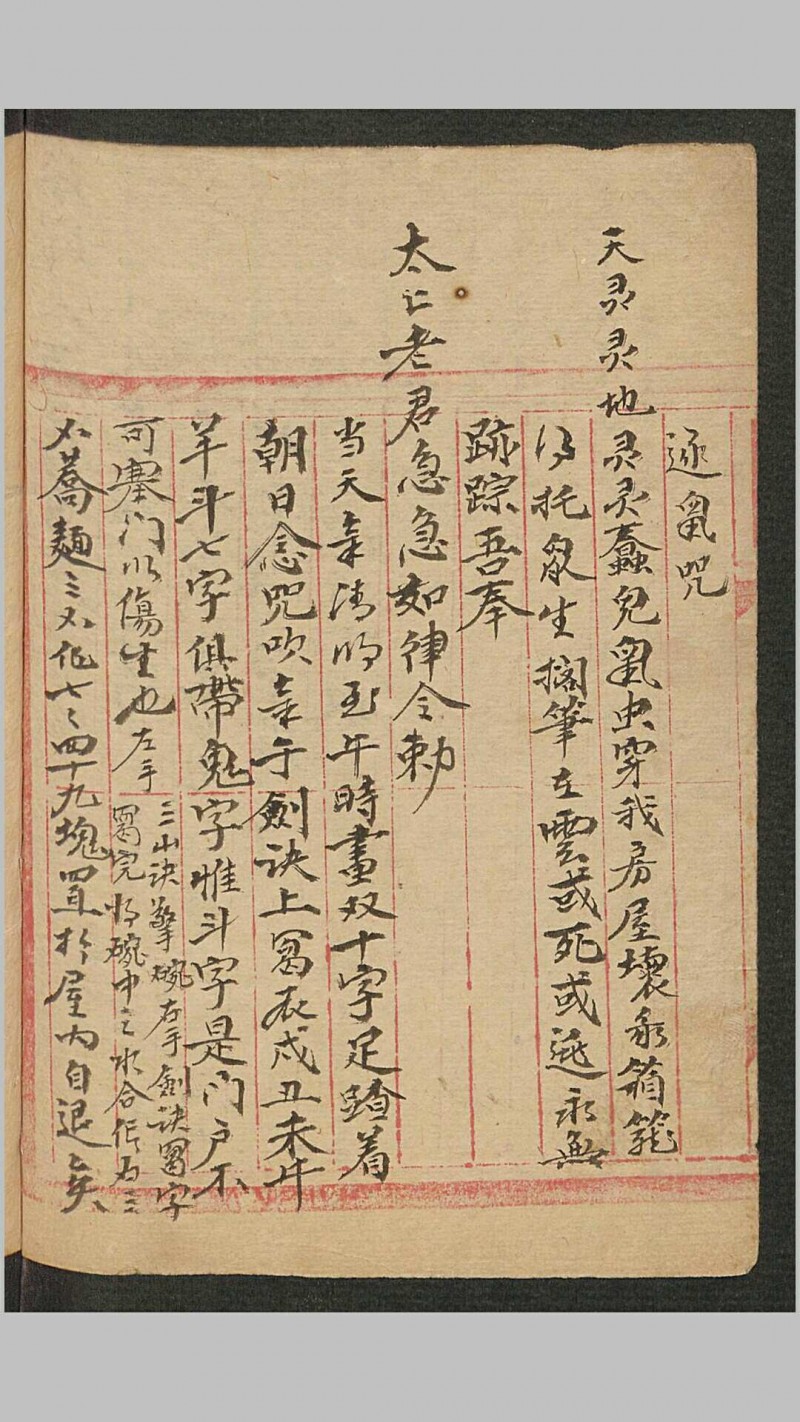 逐鼠咒
天灵灵地灵灵蠢兒鼠虫穿我房屋壞我箱籠
你托鼠生搁筆在雲或死或逃永無
跡踪吾奉
太上老君急急如律令勅
当天氣清明至午時畫双十字足踏着
朝日念咒吹氣于劍诀上寫辰戌丑未牛
羊斗七字俱帶鬼字惟斗字是门户不
可塞门以傷生也左手
三山诀擎碗右手劍诀寫字
寫完将碗中之水合作为三
蕎麵三作七七四十九塊置於屋内自退矣